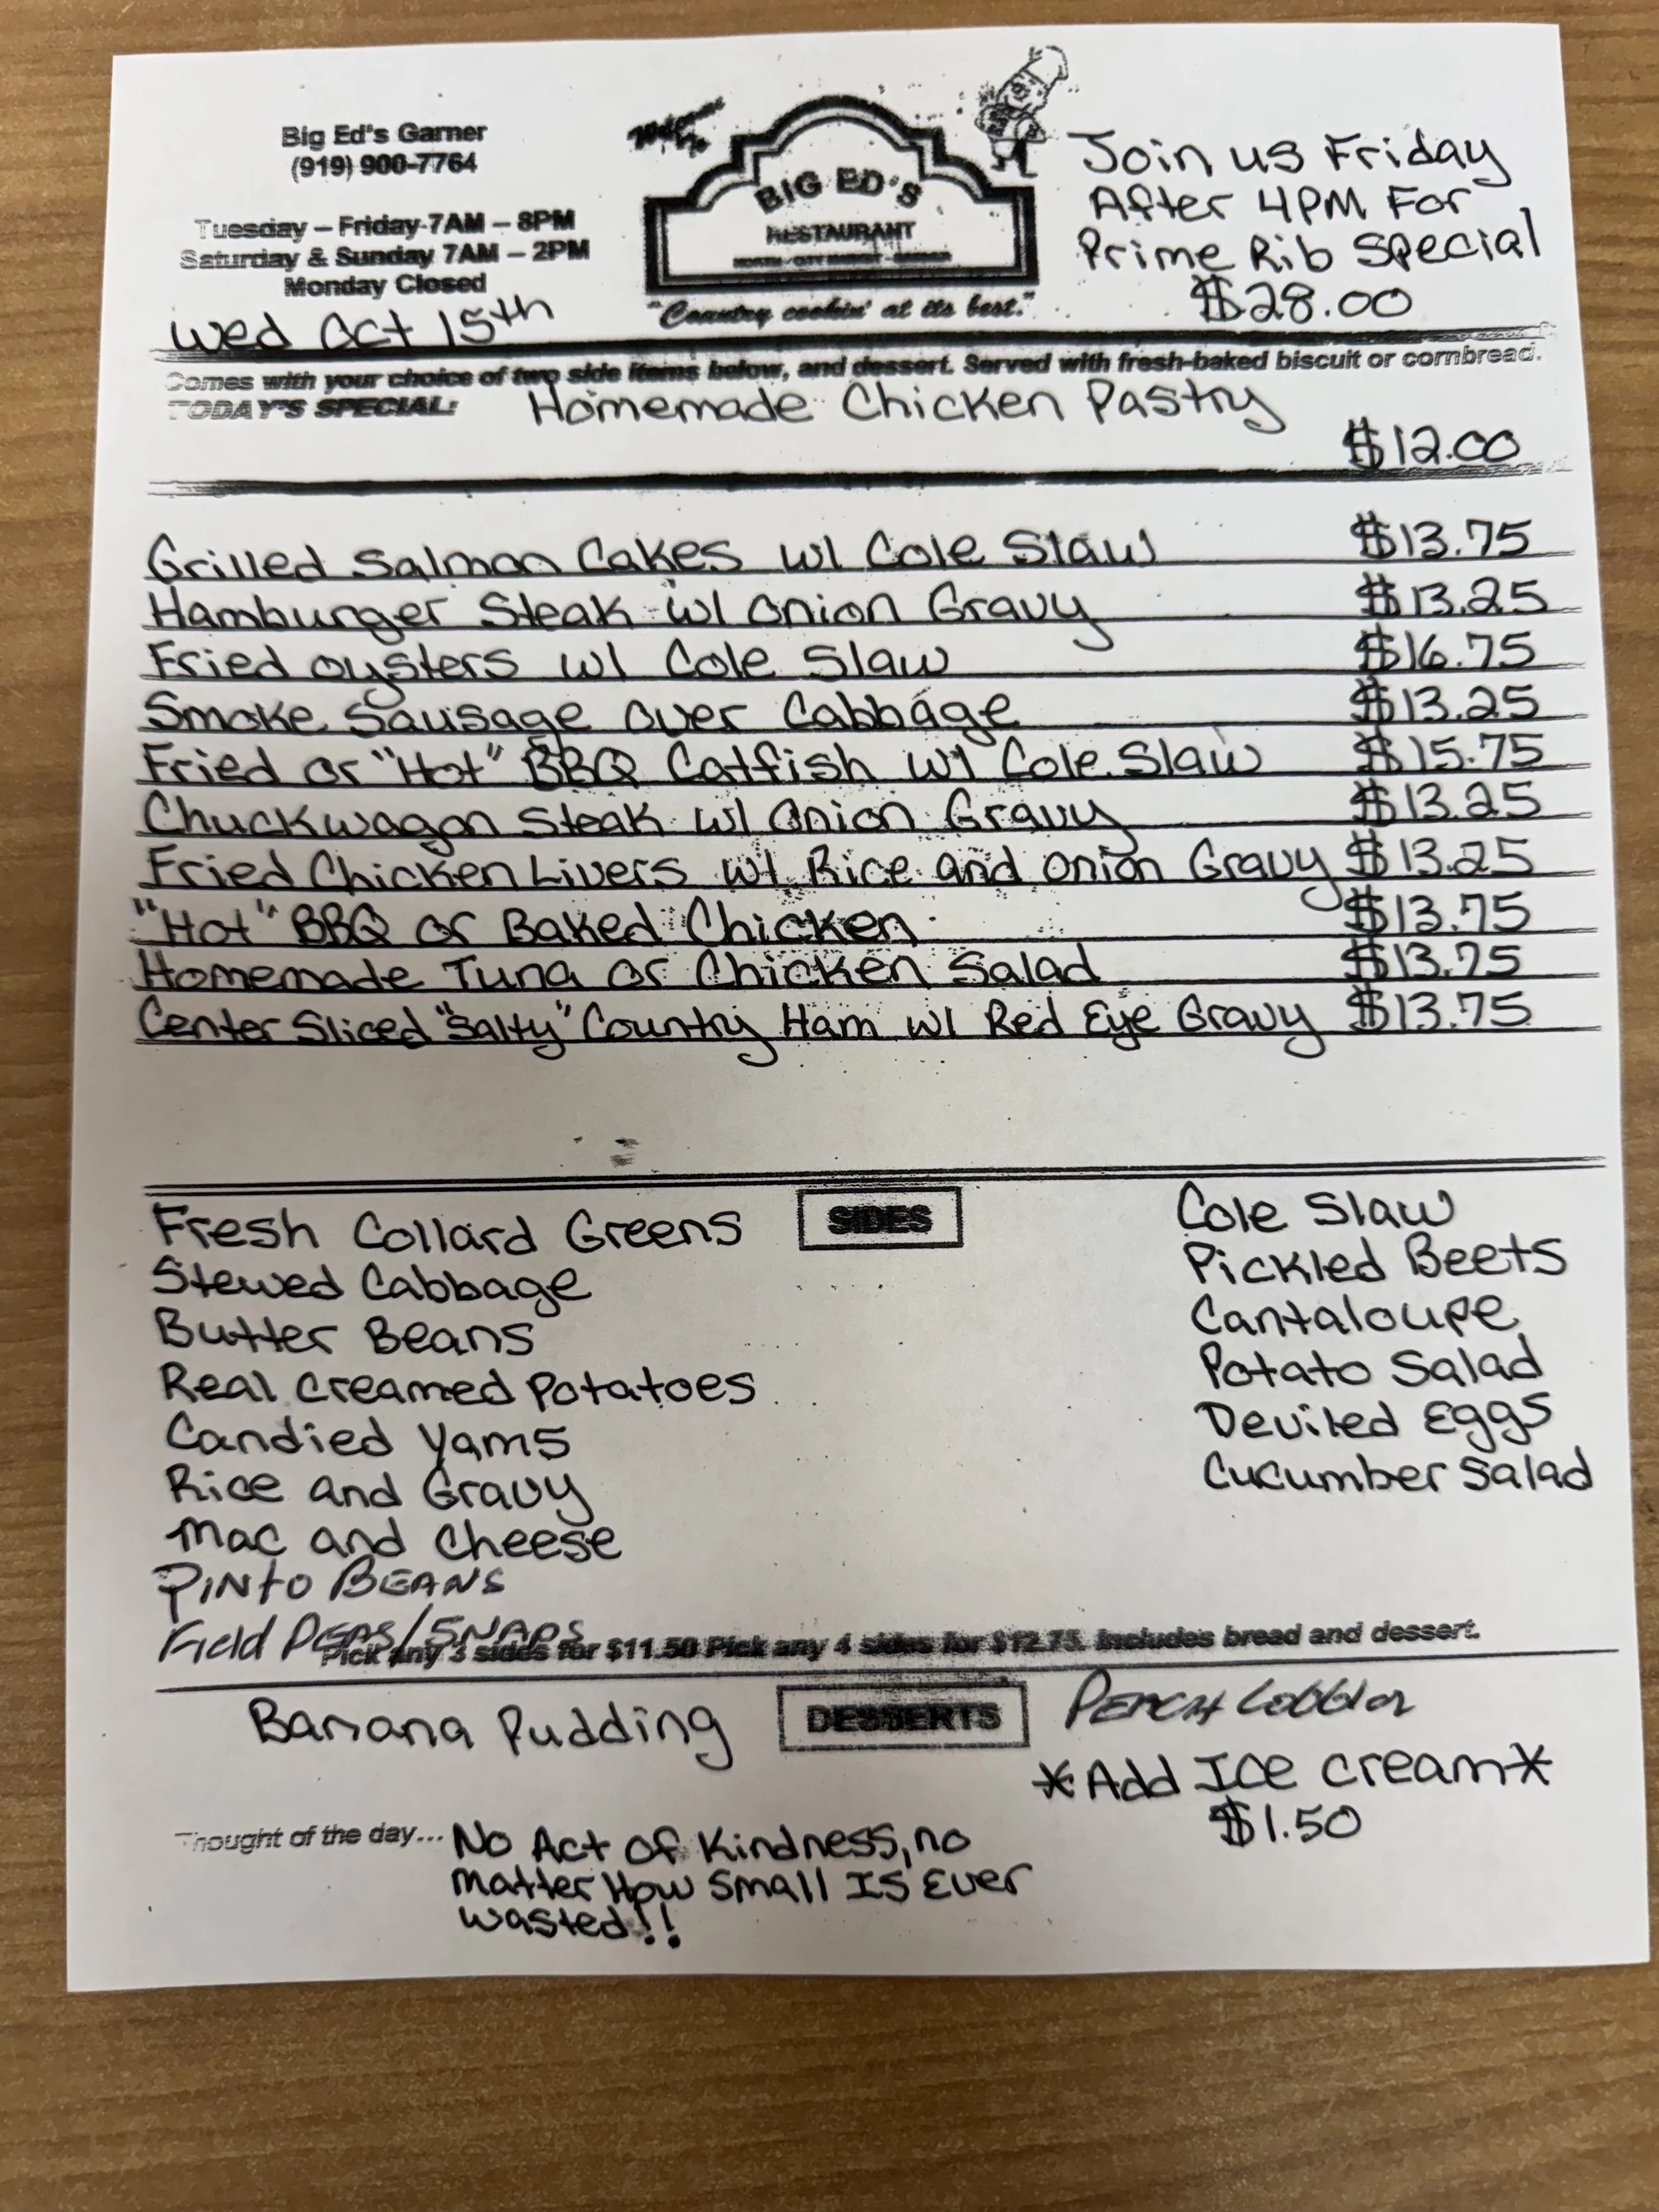 Big Ed's Garner
(919) 900-7764
Tuesday – Friday 7AM – 8PM
Saturday & Sunday 7AM – 2PM
Monday Closed
Wed Oct 15th
BIG ED'S
RESTAURANT
NORTH - CITY MARKET - GARNER
"Country cookin' at its best."
Join us Friday
After 4PM For
Prime Rib Special
$28.00
Comes with your choice of two side items below, and dessert. Served with fresh-baked biscuit or cornbread.
TODAY'S SPECIAL: Homemade Chicken Pastry
$12.00
Grilled Salmon Cakes w/ Cole Slaw $13.75
Hamburger Steak w/ Onion Gravy $13.25
Fried oysters w/ Cole Slaw $16.75
Smoke Sausage over Cabbage $13.25
Fried or "Hot" BBQ Catfish w/ Cole Slaw $15.75
Chuckwagon Steak w/ Onion Gravy $13.25
Fried Chicken Livers w/ Rice and Onion Gravy $13.25
"Hot" BBQ or Baked Chicken $13.75
Homemade Tuna or Chicken Salad $13.75
Center Sliced "Salty" Country Ham w/ Red Eye Gravy $13.75
SIDES
Fresh Collard Greens
Stewed Cabbage
Butter Beans
Real Creamed Potatoes
Candied Yams
Rice and Gravy
Mac and Cheese
PINTO BEANS
Field PEAS/SNAPS
Cole Slaw
Pickled Beets
Cantaloupe
Potato Salad
Deviled Eggs
Cucumber Salad
Pick any 3 sides for $11.50 Pick any 4 sides for $12.75. Includes bread and dessert.
DESSERTS
Banana Pudding
PEACH Cobbler
*Add Ice Cream*
$1.50
Thought of the day... No Act of Kindness, no
matter How Small Is Ever
wasted!!